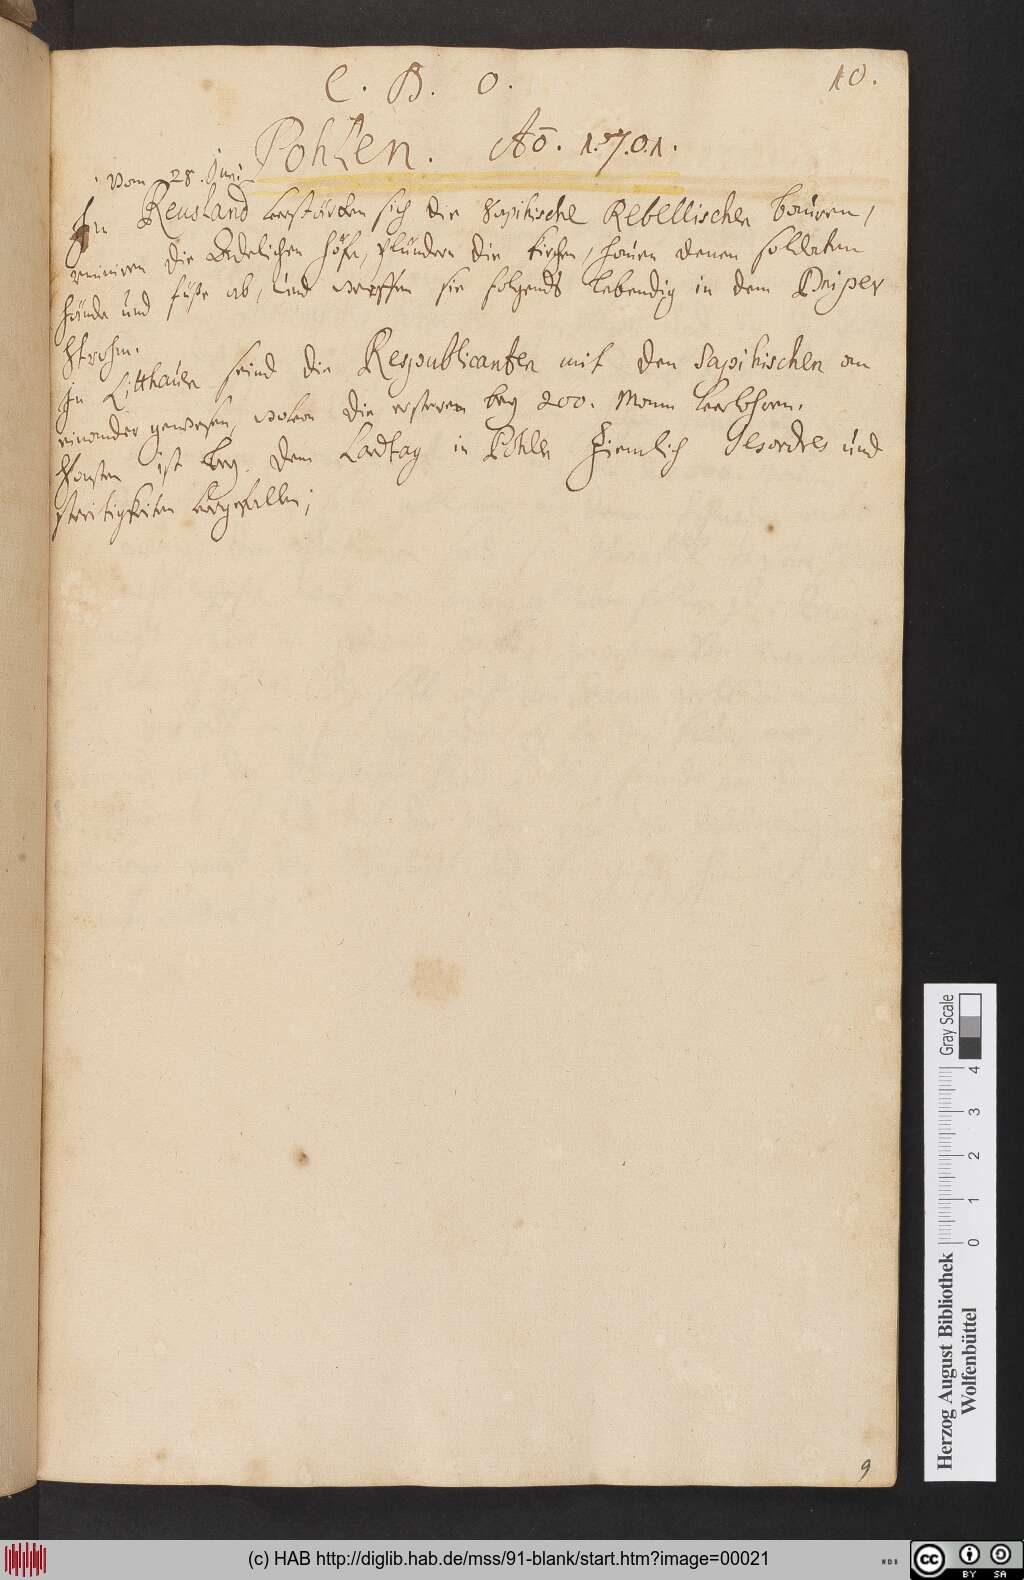 C. B. O.
10.
Pohlen. Aō. 1.7.0.1.
vom 28. Juni
In Reusland verstärcken sich die Sapikische Rebellischen bauren,
ruiniren die Adelichen höfe, plündern die kirchen, hauen denen soldaten
hände und füße ab, und werffen sie folgends lebendig in dem Neiper
Strohm.
In Litthauen seind die Respublicanten mit den Sapikischen an
einander gewesen, wobey die ersteren bey 200. Mann verlohren.
Sonsten ist bey dem Ladtag in Pohlen Ziemlich Desordres und
streitigkeiten vorgefallen;
9
Herzog August Bibliothek
Wolfenbüttel
0 1 2 3 4
Gray Scale
(c) HAB http://diglib.hab.de/mss/91-blank/start.htm?image=00021
WDB
cc BY SA